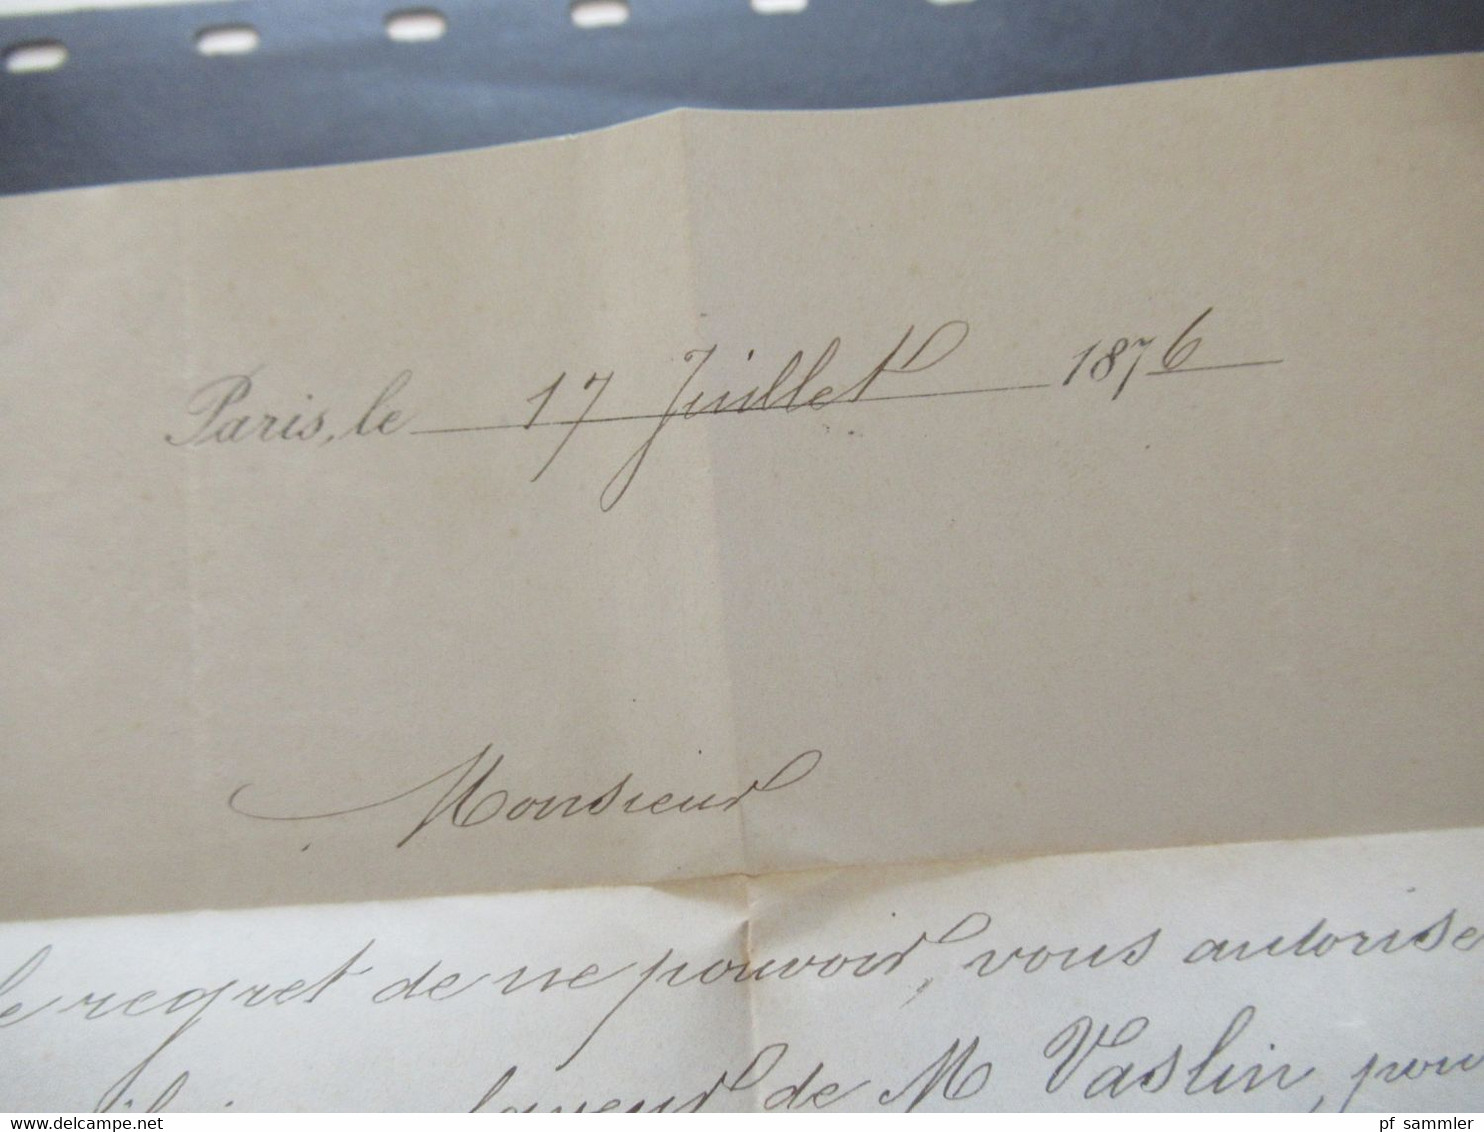 Paris, le 17 Juillet 1876
Monsieur
le regret de ne pouvoir, vous autorise
faveur de M Vaslin, pour
delcampe.net
pf_sammler